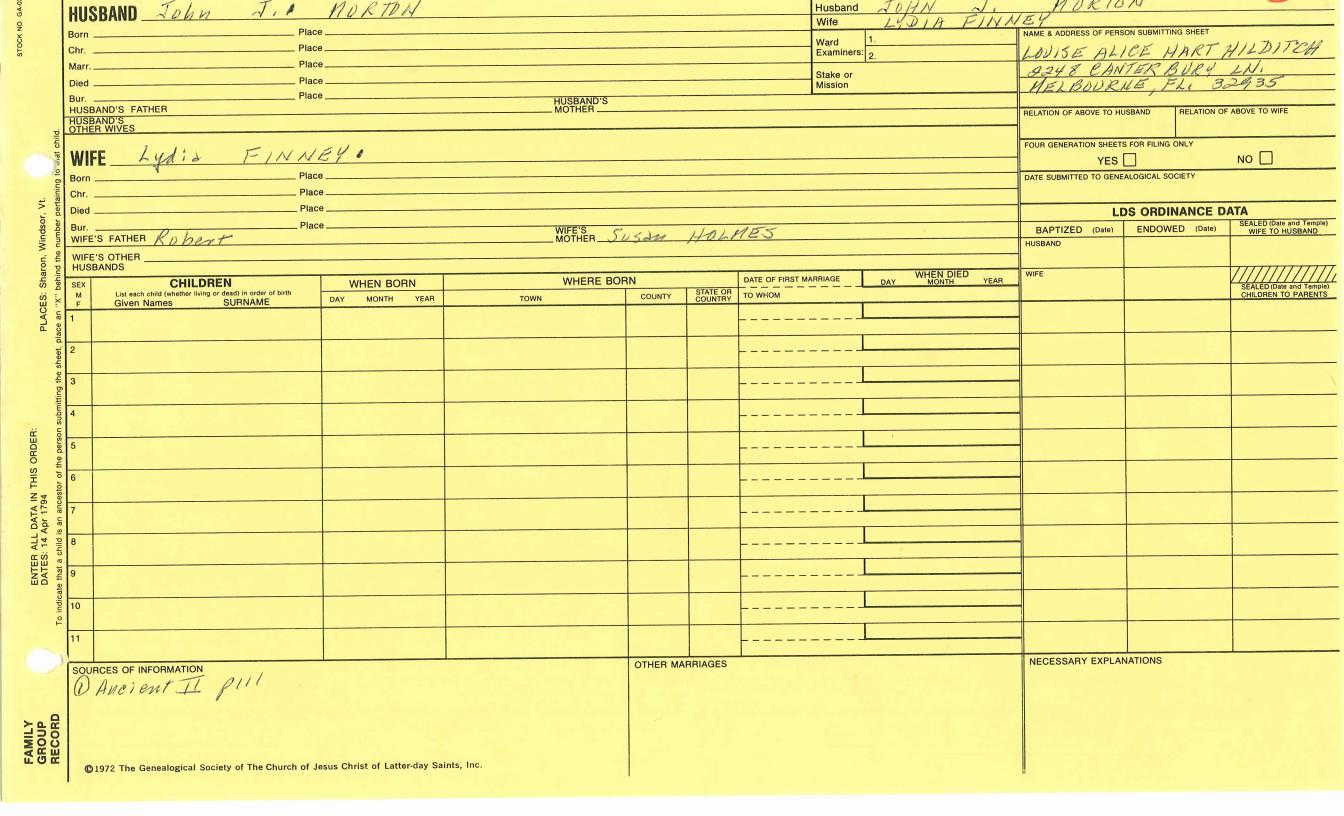 STOCK NO. GA-0
HUSBAND John J. MORTON
Husband JOHN J. MORTON
Wife LYDIA FINNEY
Born Place
Chr. Place
Marr. Place
Died Place
Bur. Place
Ward Examiners: 1. 2.
Stake or Mission
NAME & ADDRESS OF PERSON SUBMITTING SHEET
LOUISE ALICE HART HILDITCH
2248 CANTERBURY LN.
MELBOURNE, FL. 32935
HUSBAND'S FATHER HUSBAND'S MOTHER
HUSBAND'S OTHER WIVES
RELATION OF ABOVE TO HUSBAND RELATION OF ABOVE TO WIFE
WIFE Lydia FINNEY.
Born Place
Chr. Place
Died Place
Bur. Place
WIFE'S FATHER Robert WIFE'S MOTHER Susan HOLMES
WIFE'S OTHER HUSBANDS
FOUR GENERATION SHEETS FOR FILING ONLY
YES NO
DATE SUBMITTED TO GENEALOGICAL SOCIETY
LDS ORDINANCE DATA
BAPTIZED (Date) ENDOWED (Date) SEALED (Date and Temple) WIFE TO HUSBAND
HUSBAND
WIFE
SEALED (Date and Temple) CHILDREN TO PARENTS
SEX M F
CHILDREN
List each child (whether living or dead) in order of birth
Given Names SURNAME
WHEN BORN
DAY MONTH YEAR
WHERE BORN
TOWN COUNTY STATE OR COUNTRY
DATE OF FIRST MARRIAGE
TO WHOM
WHEN DIED
DAY MONTH YEAR
1
2
3
4
5
6
7
8
9
10
11
SOURCES OF INFORMATION
① Ancient II p111
OTHER MARRIAGES
NECESSARY EXPLANATIONS
©1972 The Genealogical Society of The Church of Jesus Christ of Latter-day Saints, Inc.
FAMILY GROUP RECORD
ENTER ALL DATA IN THIS ORDER:
DATES: 14 Apr 1794
PLACES: Sharon, Windsor, Vt.
To indicate that a child is an ancestor of the person submitting the sheet, place an "X" behind the number pertaining to that child.